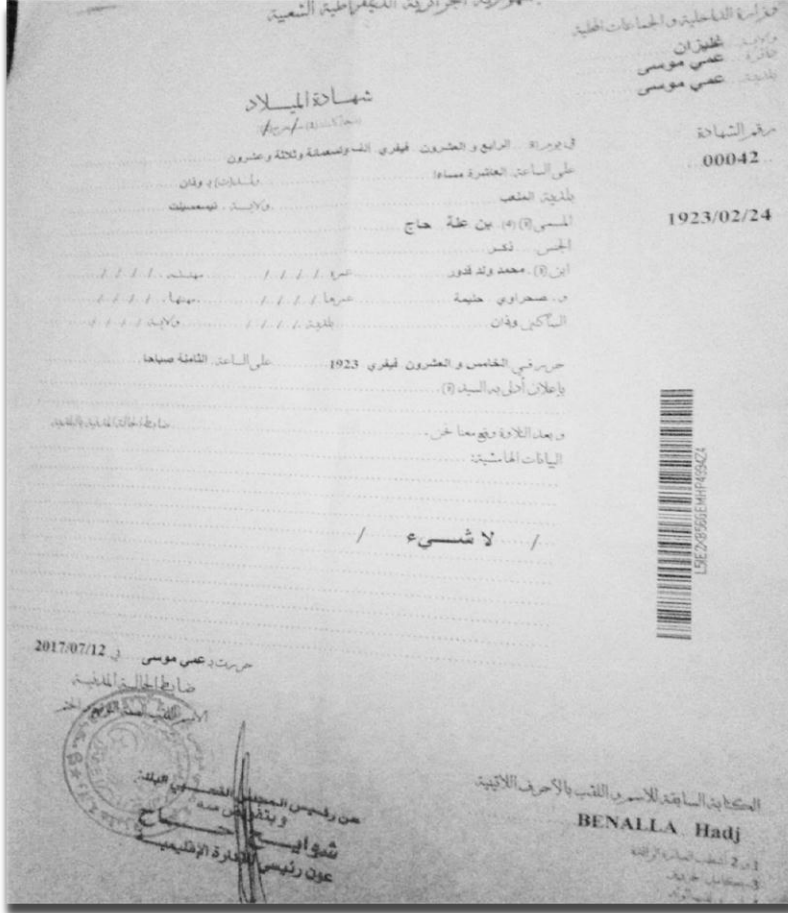 الجمهورية الجزائرية الديمقراطية الشعبية
وزارة الداخلية و الجماعات المحلية
ولاية غليزان
دائرة عمي موسى
بلدية عمي موسى
شهادة الميلاد
رقم الشهادة
00042
1923/02/24
في يوم الرابع و العشرون فيفري الف وتسعمائة وثلاثة وعشرون
على الساعة العاشرة مساءا
بلدية الملعب ولاية تيسمسيلت
المسمى بن علة حاج
الجنس ذكر
ابن محمد ولد قدور عمره / / / / مهنته / / / /
و صحراوي حليمة عمرها / / / / مهنتها / / / /
الساكنين وفان بلدية / / / / ولاية / / / /
حرر في الخامس و العشرون فيفري 1923 على الساعة الثامنة صباحا
بإعلان أدلى به السيد
و بعد التلاوة وقع معنا نحن ضابط الحالة المدنية بالبلدية
البيانات الهامشية:
/ لا شيء /
L5IE2X8566EMHP4994Z4
حررت بـ عمي موسى في 2017/07/12
ضابط الحالة المدنية
عن رئيس المجلس الشعبي البلدي
و بتفويض منه
شوايح حاج
عون رئيسي للإدارة الإقليمية
الكتابة السابقة للاسم و اللقب بالأحرف اللاتينية
BENALLA Hadj